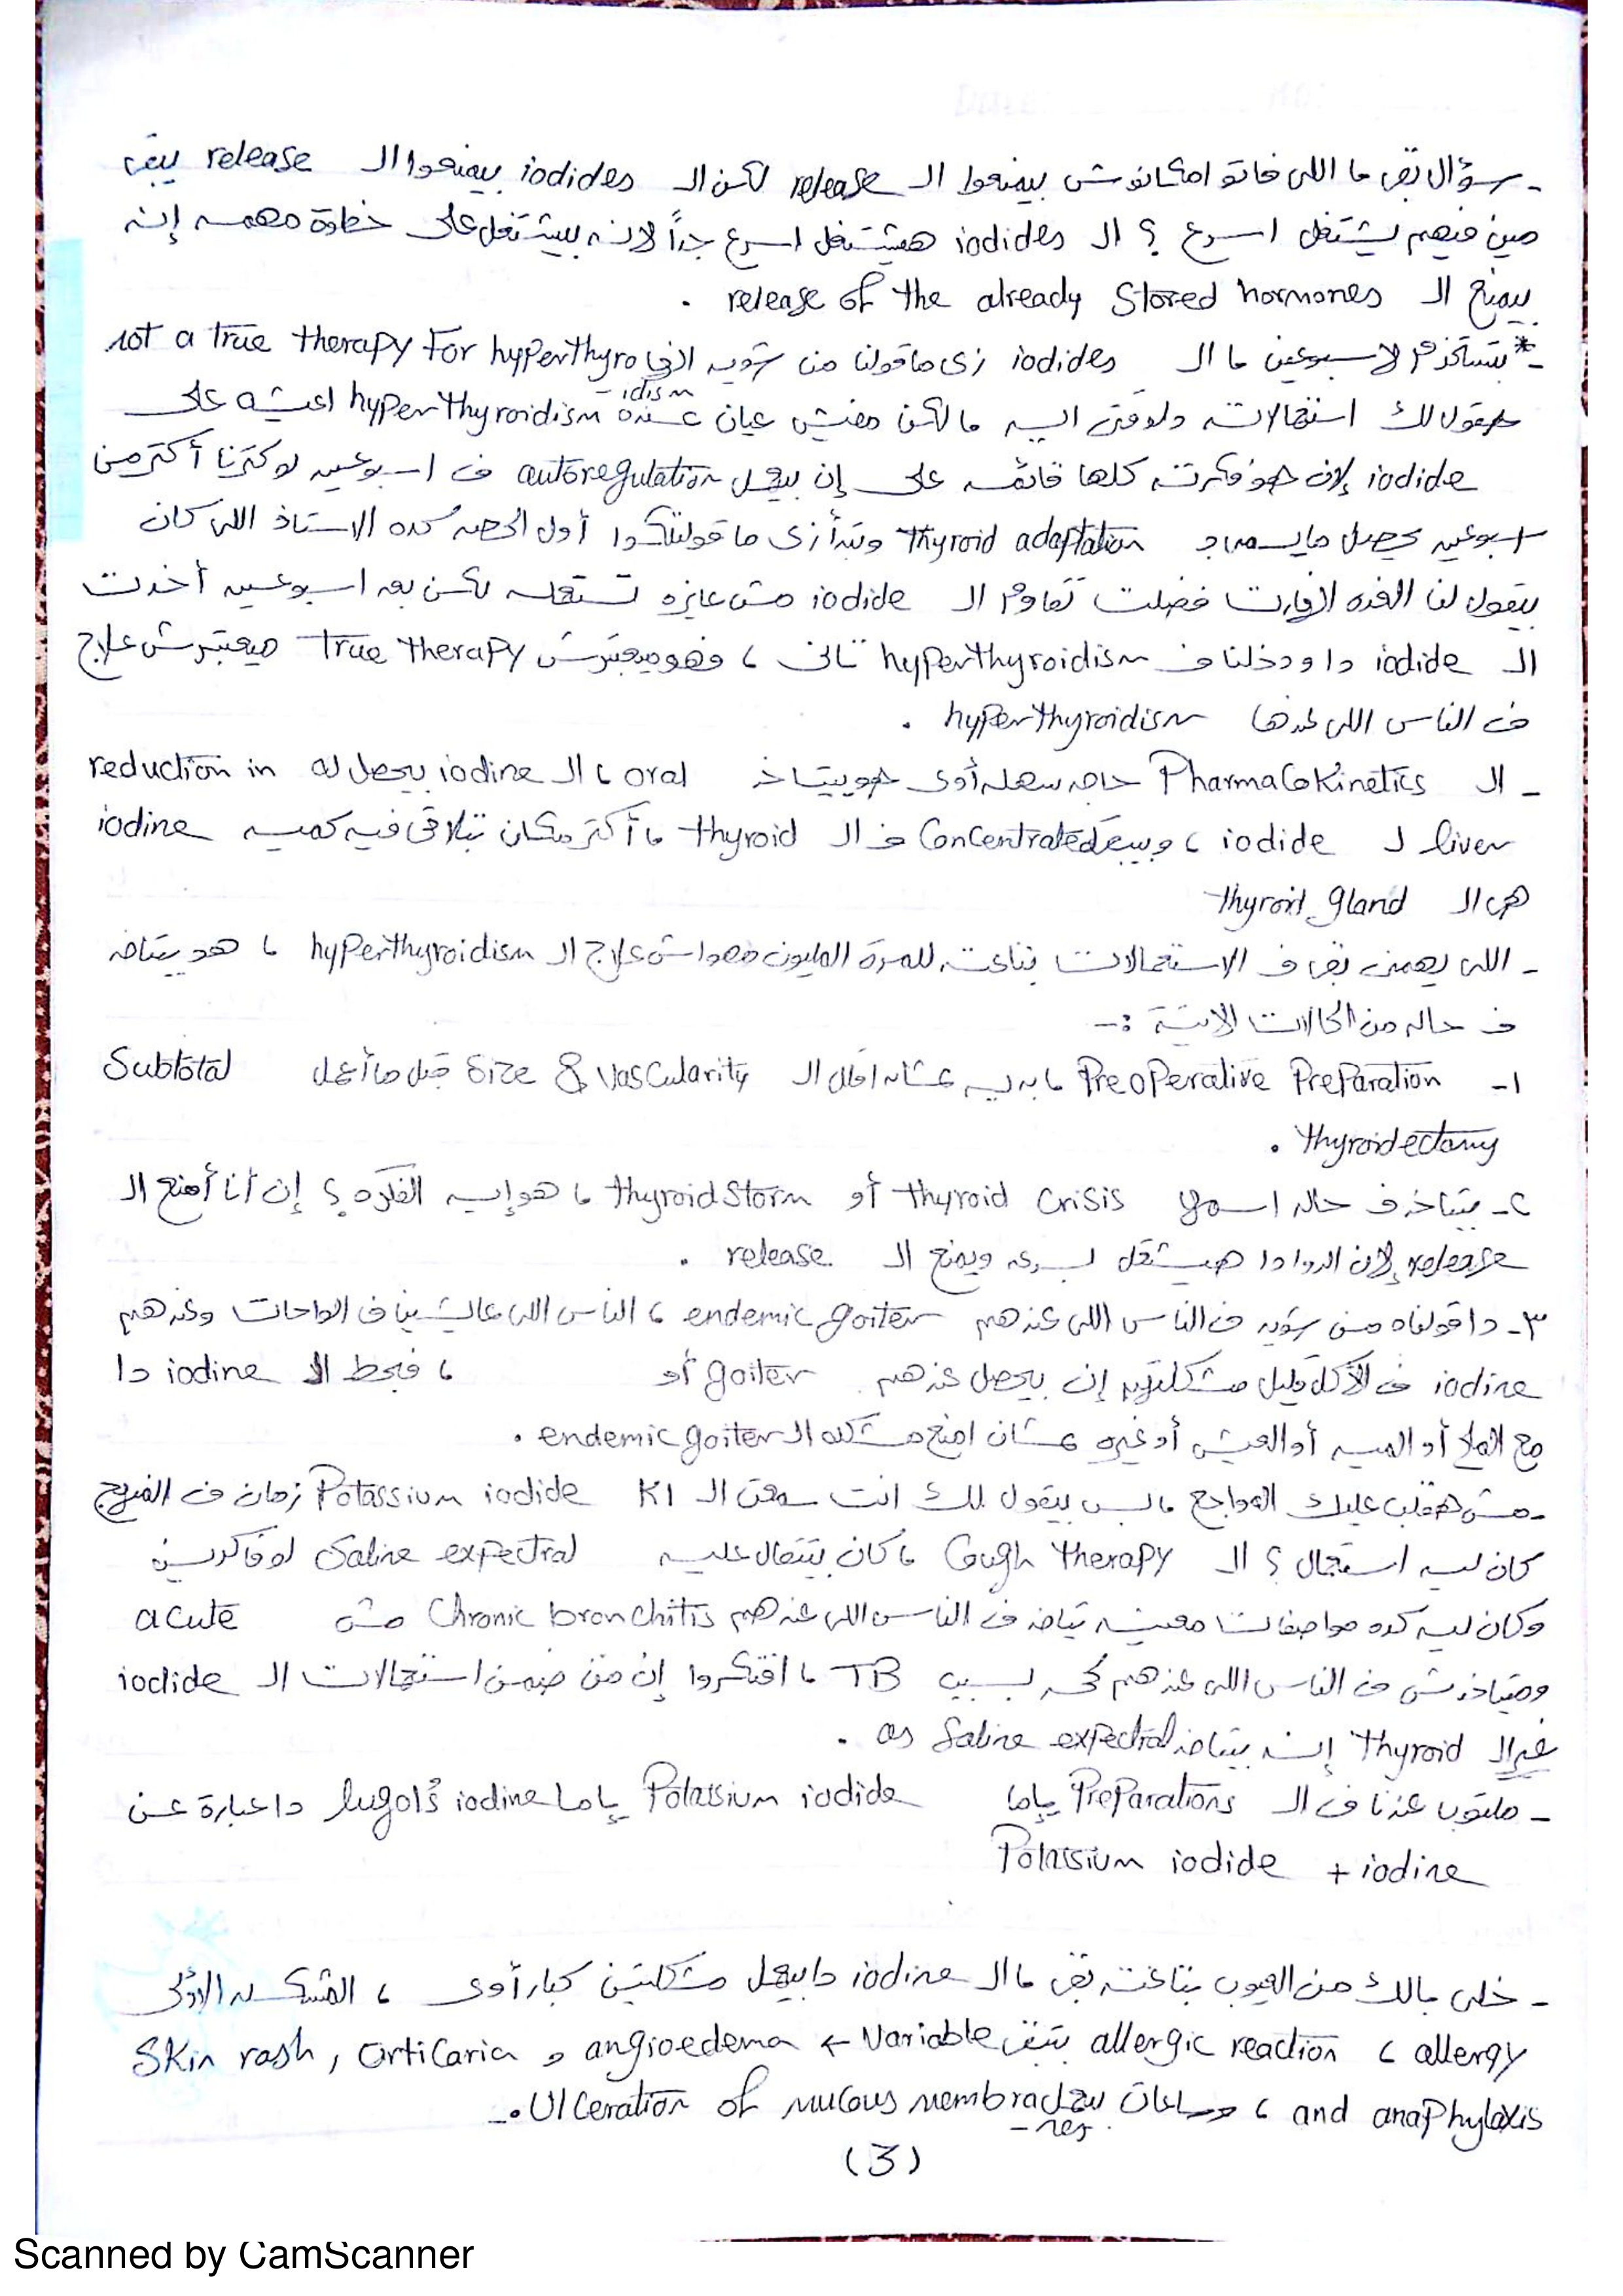 - سؤال بقى ما اللى فاتو امكانوش بيمنعوا الـ release لكن الـ iodides بيمنعوا الـ release يبقى
مين فيهم يشتغل اسرع ؟ الـ iodides هيشتغل اسرع جداً لانه بيشتغل على خطوة مهمه إنه
بيمنع الـ release of the already stored hormones .
-* بتستخدم لاسبوعين ما الـ iodides زى ما قولنا من شويه انها not a true therapy For hyperthyro
- idism
هقولك استعمالاته دلوقتى اليه ما لكن مفيش عيان عنده hyperthyroidism اعيشه على
iodide لإن هو فكرته كلها قائمه على إن بيعمل autoregulation ف اسبوعين لو كترنا أكتر من
اسبوعين يحصل ما يسمى بـ thyroid adaptation وتبدأ زى ما قولتلكوا أول الحصه كده الاستاذ اللى كان
بيقول لنا الغده الوقارت فضلت تقاوم الـ iodide مش عايزه تستعمله لكن بعد اسبوعين أخدت
الـ iodide دا ودخلنا ف hyperthyroidism تانى ، فهو ميعتبرش True therapy ميعتبرش علاج
ف الناس اللى عندها hyperthyroidism .
- الـ PharmaCoKinetics حاجه سهله أوى هو بيتاخد oral ، الـ iodine بيحصل له reduction in
liver لـ iodide ، وبيبقى Concentrated ف الـ thyroid ، أكتر مكان تلاقى فيه كميه iodine
هى الـ thyroid gland
- اللى يهمنى بقى ف الاستعمالات بتاعته للمرة المليون مهواش علاج الـ hyperthyroidism ، هو بيتاخد
ف حاله من الحالات الاتية :-
١- Preoperative Preparation ما بديه عشان اقلل الـ Size & Vascularity قبل ما أعمل Subtotal
thyroidectomy .
٢- بيتاخد ف حاله اسمها thyroid crisis أو thyroid storm ما هو إيه الفكره ؟ إن أنا أمنع الـ
release لإن الدوا دا هيشتغل بسرعه ويمنع الـ release .
٣- دا قولناه من شويه ف الناس اللى عندهم endemic goiter ، الناس اللى عايشين ف الواحات وعندهم
iodine ف الأكل قليل مشكلتهم إن بيحصل عندهم goiter أو ، فبحط الـ iodine دا
مع الملح أو الميه أو العيش أو غيره عشان امنع مشكله الـ endemic goiter .
- مش هقلب عليك المواجع ما بس بيقول لك انت سمعت الـ KI Potassium iodide زمان ف الفريج
كان ليه استعمال ؟ الـ Cough therapy ، كان يتقال عليه Saline expectral لو فاكرين
وكان ليه كده مواصفات معينه يتاخد ف الناس اللى عندهم Chronic bronchitis مش acute
وميتاخدش ف الناس اللى عندهم كحه بسبب TB ، افتكروا إن من ضمن استعمالات الـ iodide
غير الـ thyroid إنه بيتاخد as Saline expectral .
- مكتوب عندنا ف الـ Preparations ياما Potassium iodide ياما lugol's iodine دا عبارة عن
Potassium iodide + iodine
- خلى بالك من العيوب بتاعته بقى ما الـ iodine دا بيعمل مشكلتين كبار أوى ، المشكله الأولى
allergy ، allergic reaction بتبقى Variable ← angioedema و Skin rash , urticaria
and anaphylaxis ، وساعات بيعمل Ulceration of mucous membra .-
- nes
(3)
Scanned by CamScanner